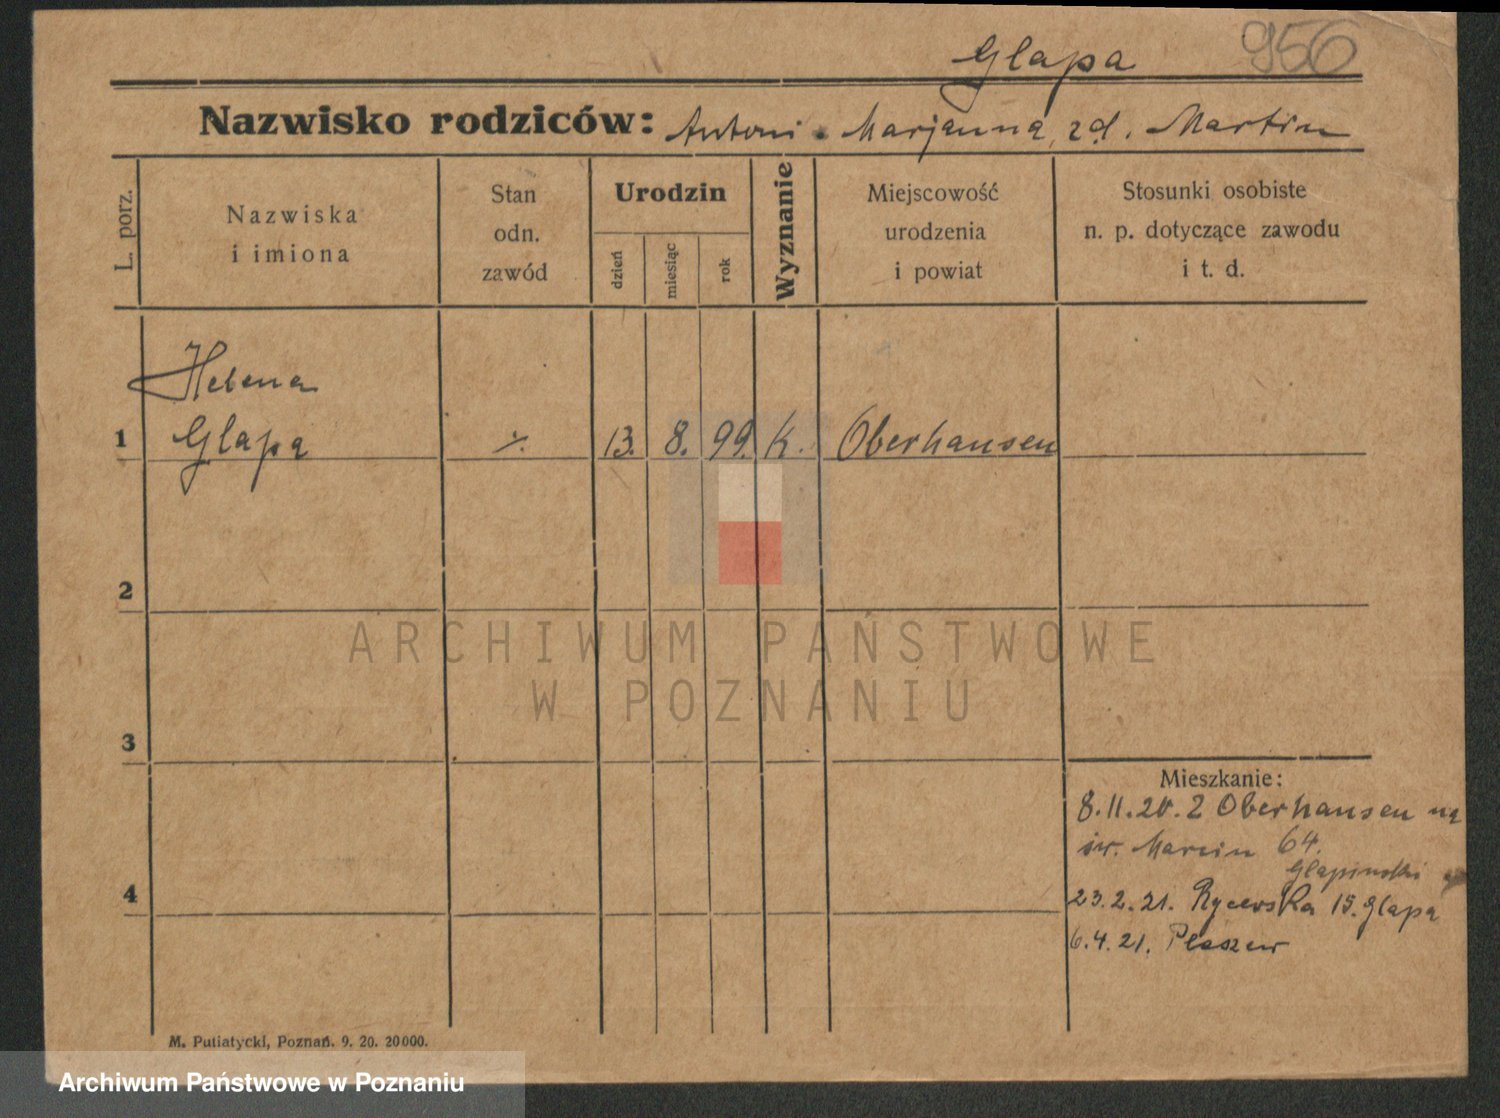 Glapa 956
Nazwisko rodziców: Antoni Marjanna zd. Martin
L. porz.
Nazwiska
i imiona
Stan
odn.
zawód
Urodzin
dzień
miesiąc
rok
Wyznanie
Miejscowość
urodzenia
i powiat
Stosunki osobiste
n. p. dotyczące zawodu
i t. d.
Helena
1 Glapa ./. 13. 8. 99. k. Oberhausen
2
3
4
Mieszkanie:
8.11.20. z Oberhausen na
św. Marcin 64.
Glapinski
23.2.21. Rycerska 15. Glapa
6.4.21. Pleszew
M. Putiatycki, Poznań. 9. 20. 20000.
ARCHIWUM PAŃSTWOWE
W POZNANIU
Archiwum Państwowe w Poznaniu